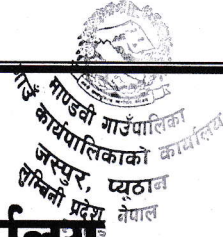 माण्डवी गाउँपालिका
गाउँ कार्यपालिकाको कार्यालय
जस्पुर, प्यूठान
लुम्बिनी प्रदेश नेपाल